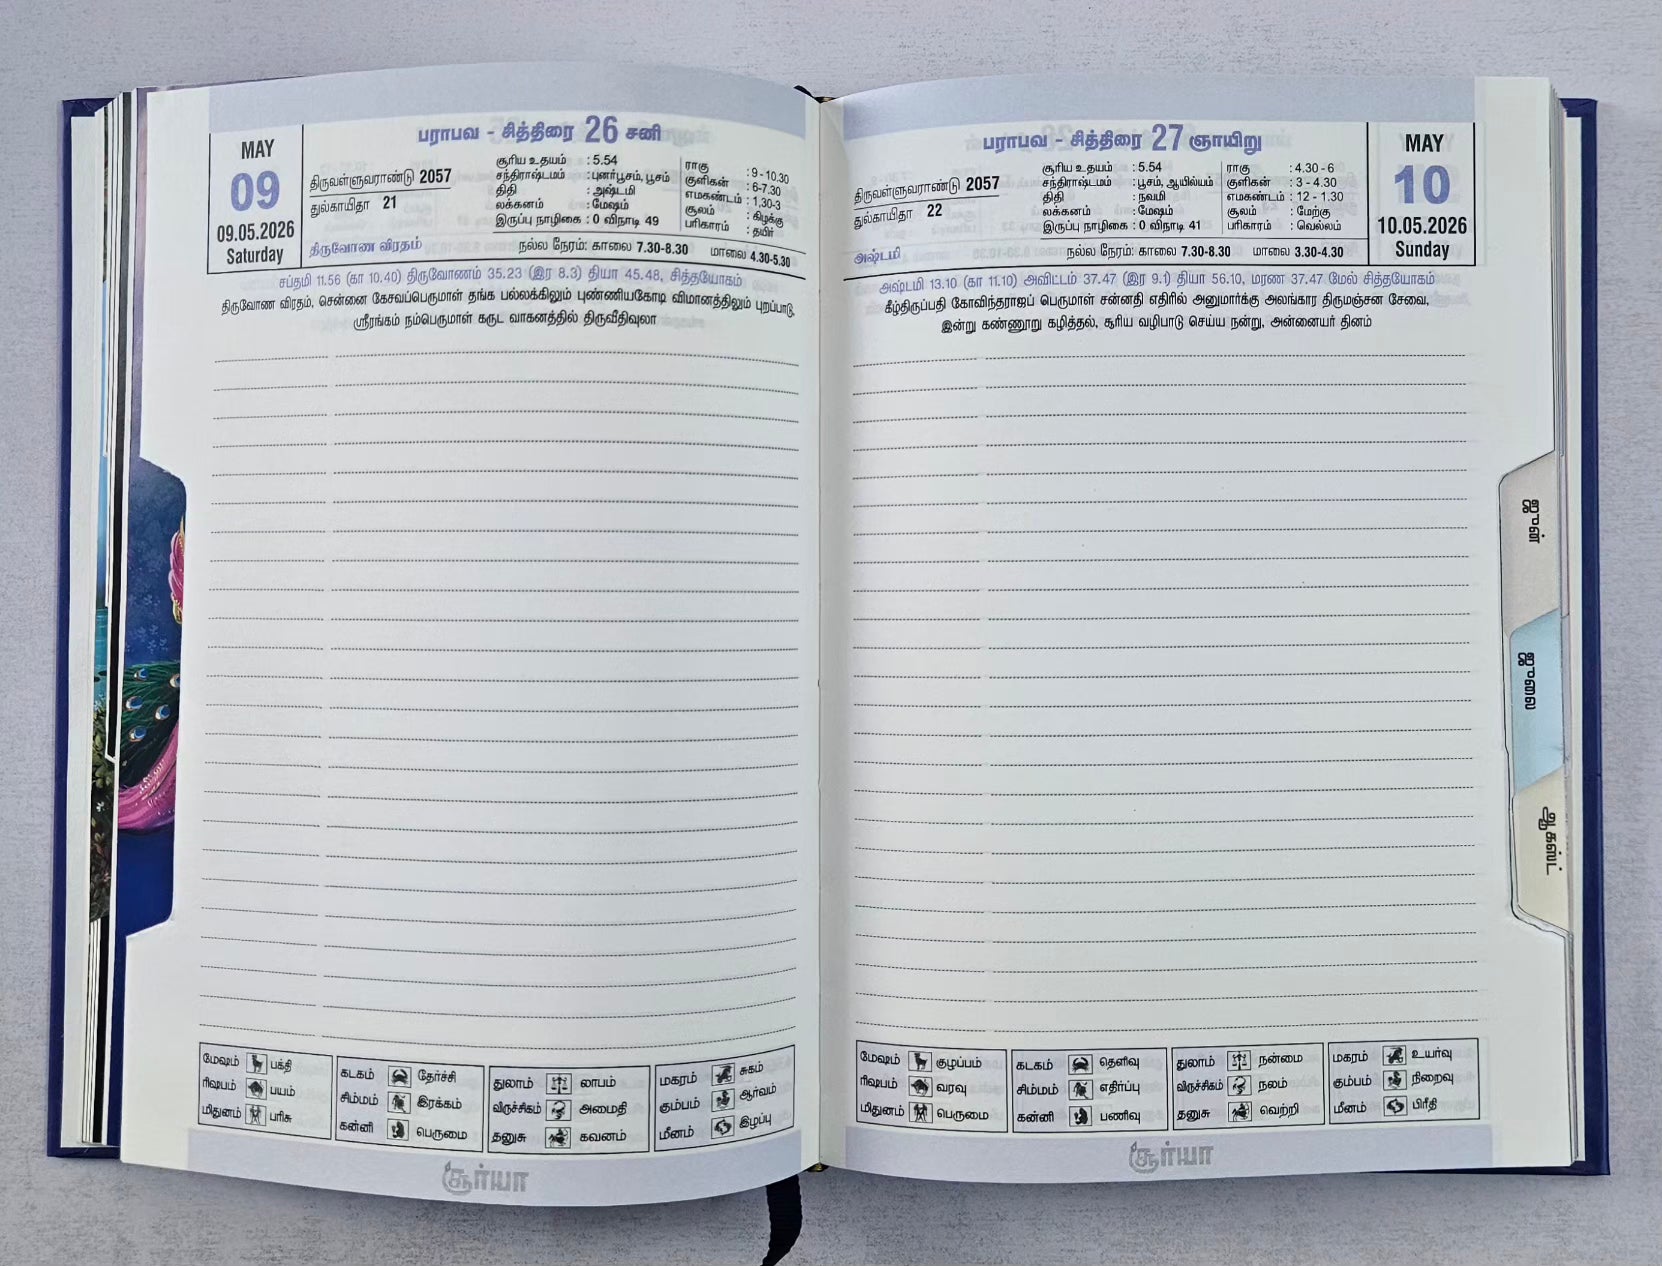 MAY
09
09.05.2026
Saturday
பராபவ - சித்திரை 26 சனி
திருவள்ளுவராண்டு 2057
துல்காயிதா 21
திருவோண விரதம்
சூரிய உதயம் : 5.54
சந்திராஷ்டமம் : புனர்பூசம், பூசம்
திதி : அஷ்டமி
லக்கனம் : மேஷம்
இருப்பு நாழிகை : 0 விநாடி 49
ராகு : 9 - 10.30
குளிகன் : 6-7.30
எமகண்டம் : 1.30-3
சூலம் : கிழக்கு
பரிகாரம் : தயிர்
நல்ல நேரம்: காலை 7.30-8.30 மாலை 4.30-5.30
சப்தமி 11.56 (கா 10.40) திருவோணம் 35.23 (இர 8.3) தியா 45.48, சித்தயோகம்
திருவோண விரதம், சென்னை கேசவப்பெருமாள் தங்க பல்லக்கிலும் புண்ணியகோடி விமானத்திலும் புறப்பாடு,
ஸ்ரீரங்கம் நம்பெருமாள் கருட வாகனத்தில் திருவீதிவுலா
மேஷம் பக்தி
ரிஷபம் பயம்
மிதுனம் பரிசு
கடகம் தேர்ச்சி
சிம்மம் இரக்கம்
கன்னி பெருமை
துலாம் லாபம்
விருச்சிகம் அமைதி
தனுசு கவனம்
மகரம் சுகம்
கும்பம் ஆர்வம்
மீனம் இழப்பு
சூர்யா
பராபவ - சித்திரை 27 ஞாயிறு
MAY
10
10.05.2026
Sunday
திருவள்ளுவராண்டு 2057
துல்காயிதா 22
அஷ்டமி
சூரிய உதயம் : 5.54
சந்திராஷ்டமம் : பூசம், ஆயில்யம்
திதி : நவமி
லக்கனம் : மேஷம்
இருப்பு நாழிகை : 0 விநாடி 41
ராகு : 4.30 - 6
குளிகன் : 3 - 4.30
எமகண்டம் : 12 - 1.30
சூலம் : மேற்கு
பரிகாரம் : வெல்லம்
நல்ல நேரம்: காலை 7.30-8.30 மாலை 3.30-4.30
அஷ்டமி 13.10 (கா 11.10) அவிட்டம் 37.47 (இர 9.1) தியா 56.10, மரண 37.47 மேல் சித்தயோகம்
கீழ்திருப்பதி கோவிந்தராஜப் பெருமாள் சன்னதி எதிரில் அனுமார்க்கு அலங்கார திருமஞ்சன சேவை,
இன்று கண்ணூறு கழித்தல், சூரிய வழிபாடு செய்ய நன்று, அன்னையர் தினம்
மேஷம் குழப்பம்
ரிஷபம் வரவு
மிதுனம் பெருமை
கடகம் தெளிவு
சிம்மம் எதிர்ப்பு
கன்னி பணிவு
துலாம் நன்மை
விருச்சிகம் நலம்
தனுசு வெற்றி
மகரம் உயர்வு
கும்பம் நிறைவு
மீனம் பிரீதி
சூர்யா
ஜூன்
ஜூலை
ஆகஸ்ட்